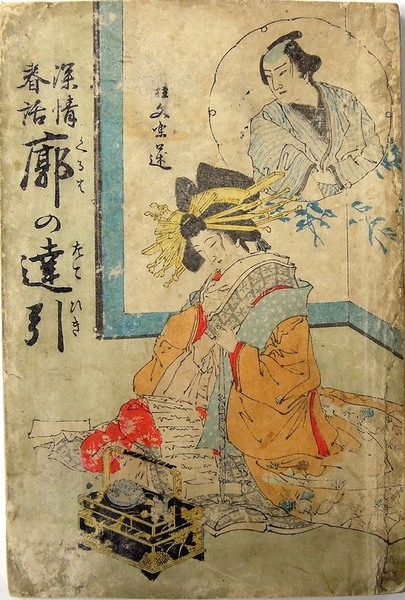 深情
春話
廓の達引
くるわ
たてひき
桂文楽述